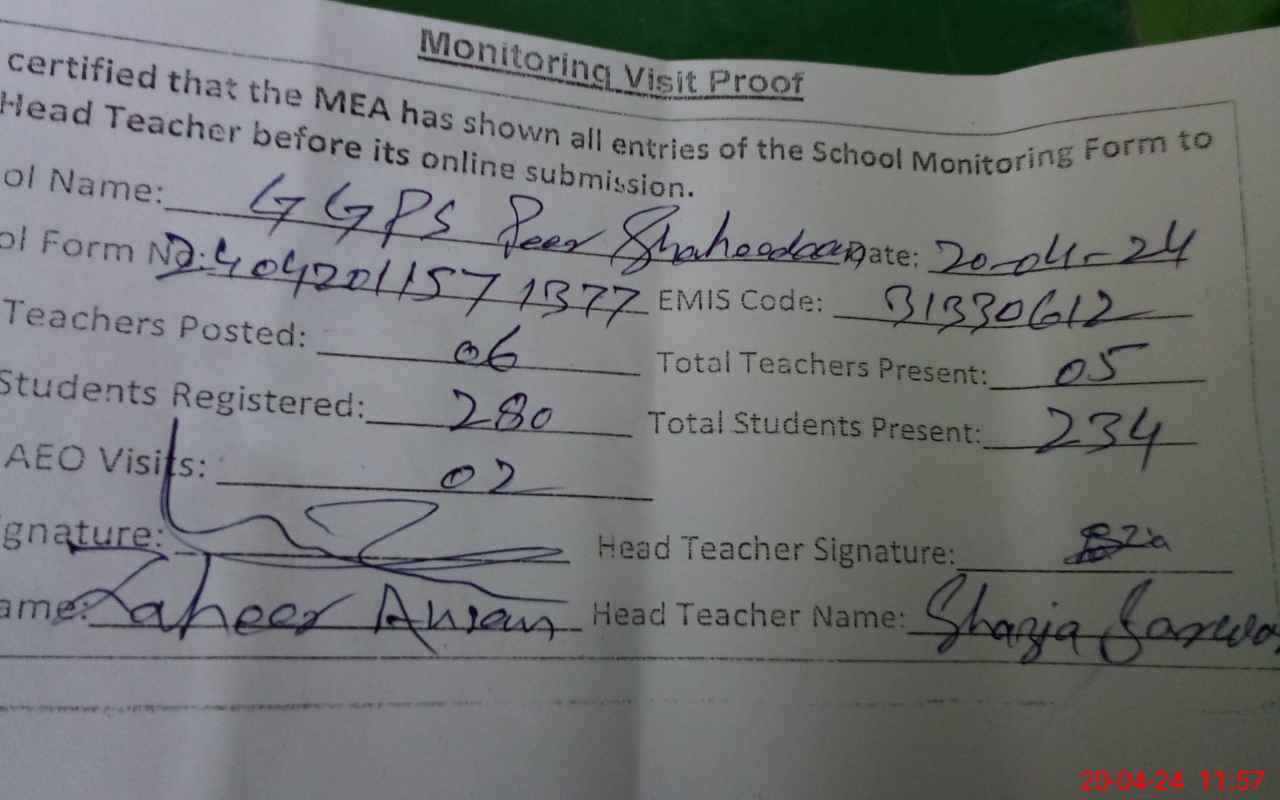 Monitoring Visit Proof
certified that the MEA has shown all entries of the School Monitoring Form to
Head Teacher before its online submission.
ol Name: GGPS Peer Shaheedaan Date: 20-04-24
ol Form No: 24042011571377 EMIS Code: 31330612
Teachers Posted: 06 Total Teachers Present: 05
Students Registered: 280 Total Students Present: 234
AEO Visits: 02
ignature: Head Teacher Signature:
ame: Zaheer Ahsan Head Teacher Name: Shazia Sarwa
20-04-24 11:57